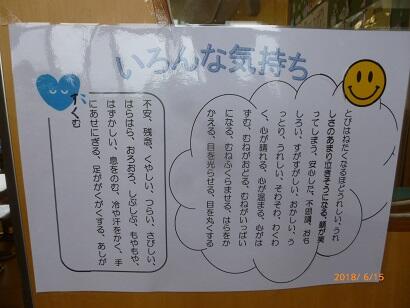 いろんな気持ち
とびはねたくなるほどうれしい、うれ
しさのあまり泣きそうになる、顔が笑
ってしまう、安心した、不思議、おも
しろい、すがすがしい、おかしい、う
っとり、うれしい、そわそわ、わくわ
く、心が晴れる、心が温まる、心がは
ずむ、むねがおどる、むねがいっぱい
になる、むねふくらませる、はらをか
かえる、目を光らせる、目を丸くする
不安、残念、くやしい、つらい、さびしい、
はらはら、おろおろ、しぶしぶ、もやもや、
はずかしい、息をのむ、冷や汗をかく、手
にあせにぎる、足ががくがくする、あしが
すくむ
2018/ 6/15